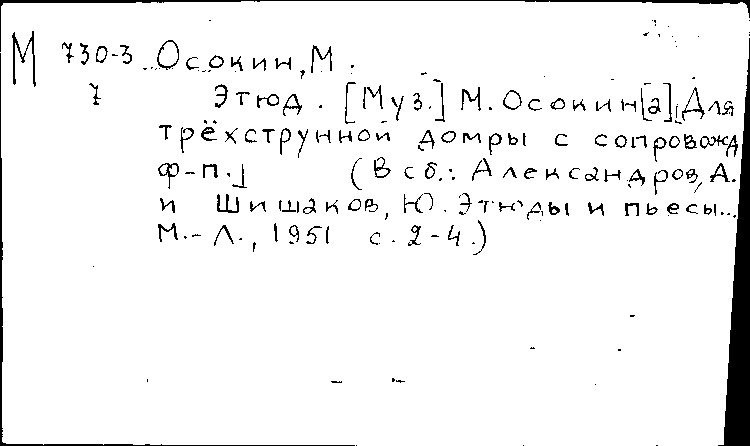 М 730-3 Осокин, М.
7 Этюд. [Муз.] М. Осокин[а] [Для
трёхструнной домры с сопровожд
ф-п.] (В сб.: Александров, А.
и Шишаков, Ю. Этюды и пьесы...
М.-Л., 1951 с. 2-4.)